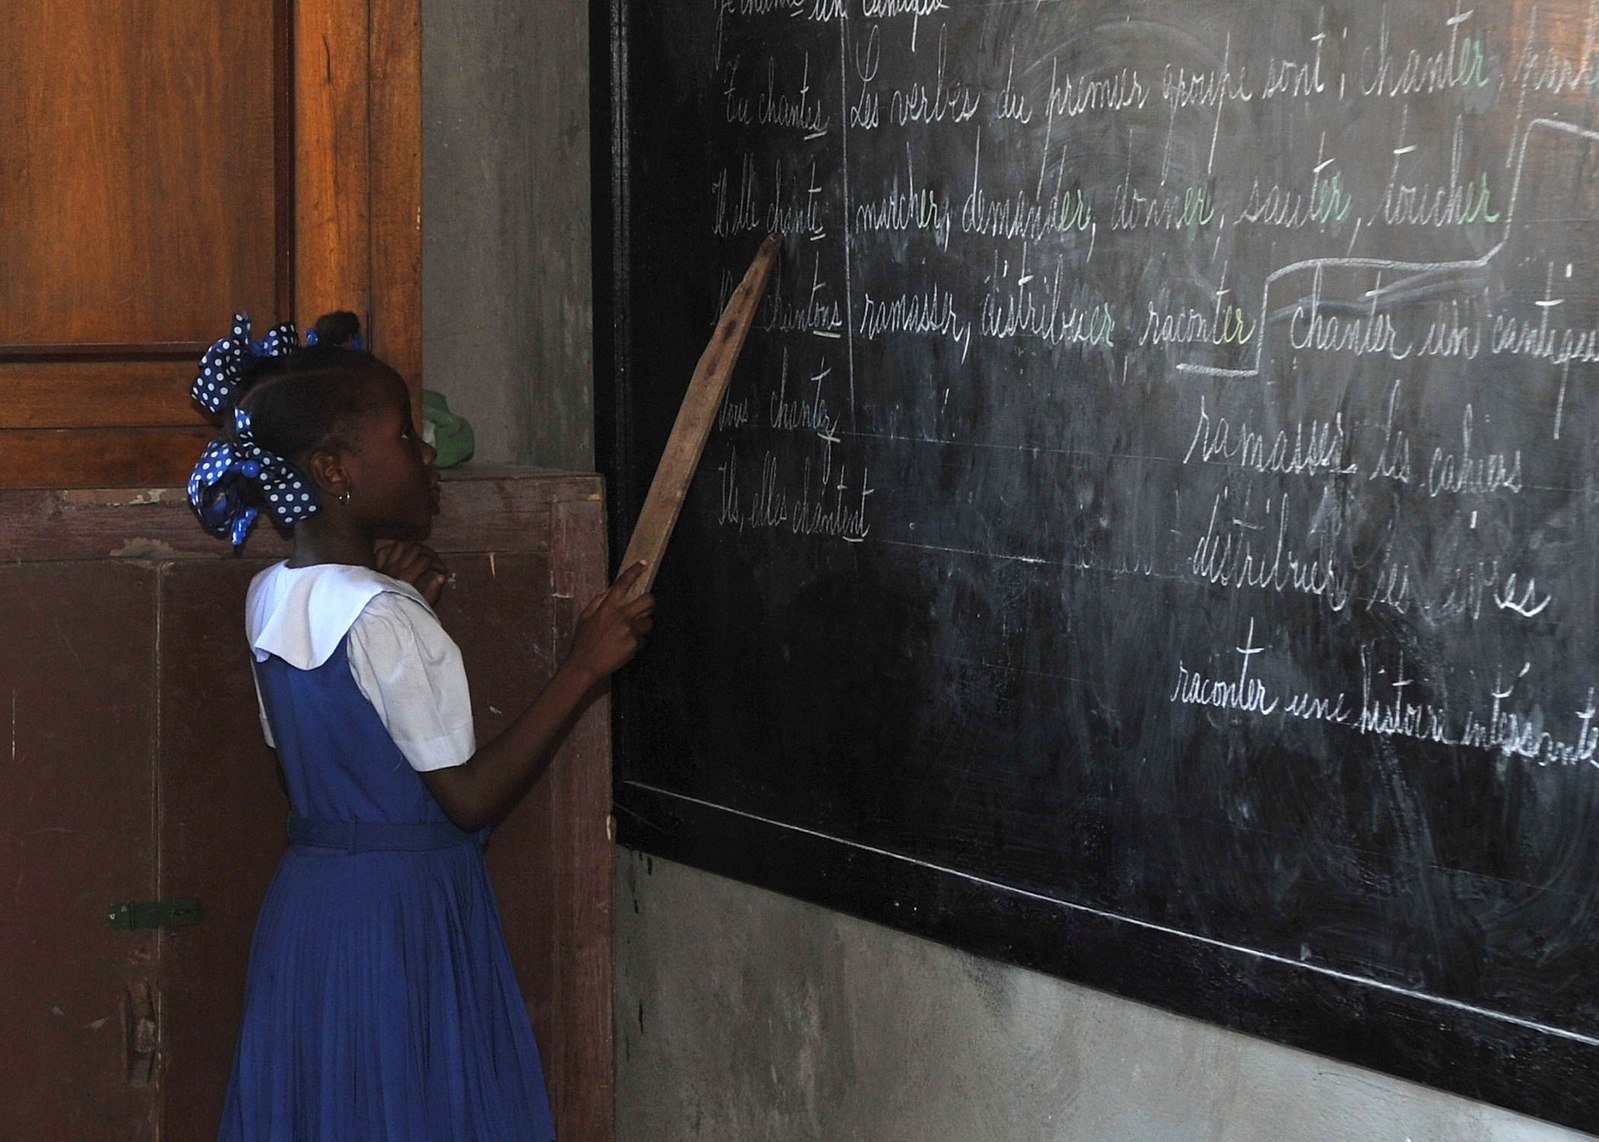 Je chante un cantique
Tu chantes
Il, elle chante
chantons
Vous chantez
Ils, elles chantent
Les verbes du premier groupe sont : chanter,
marcher, demander, donner, sauter, toucher
ramasser, distribuer, raconter
chanter un cantique
ramasser les cahiers
distribuer les livres
raconter une histoire intéressante